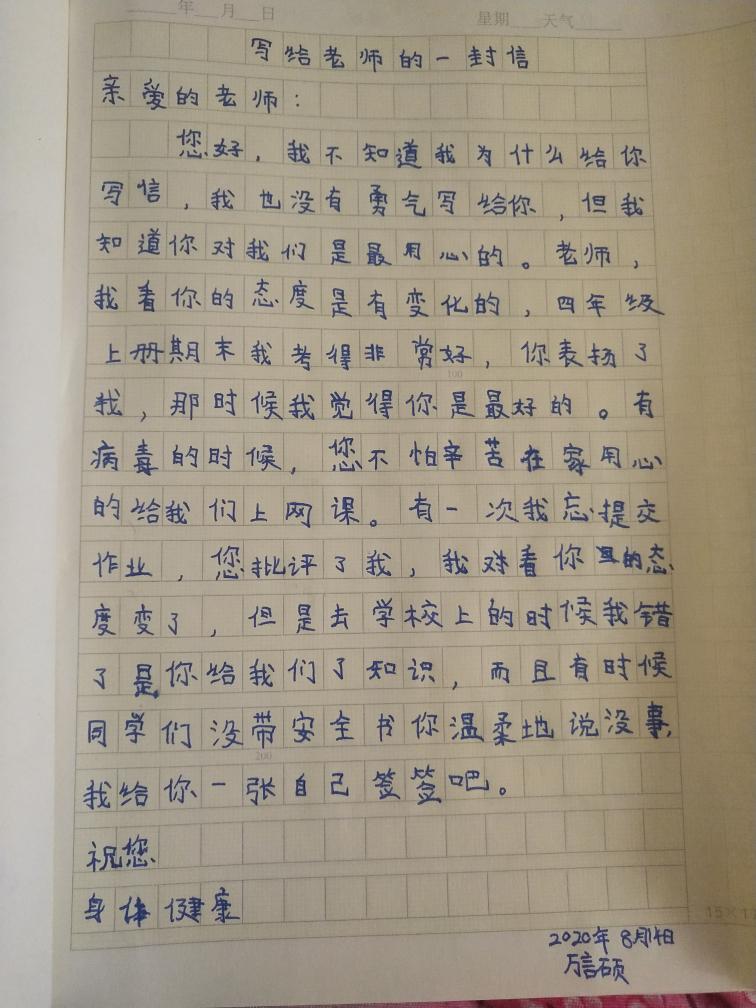 年 月 日 星期 天气
写给老师的一封信
亲爱的老师：
您好，我不知道我为什么给你
写信，我也没有勇气写给你，但我
知道你对我们是最用心的。老师，
我看你的态度是有变化的，四年级
上册期末我考得非常好，你表扬了
100
我，那时候我觉得你是最好的。有
病毒的时候，您不怕辛苦在家用心
的给我们上网课。有一次我忘提交
作业，您批评了我，我对看你的态
度变了，但是去学校上的时候我错
了是你给我们了知识，而且有时候
同学们没带安全书你温柔地说没事，
200
我给你一张自己签签吧。
祝您
身体健康
15×1
2020年8月14日
万言硕